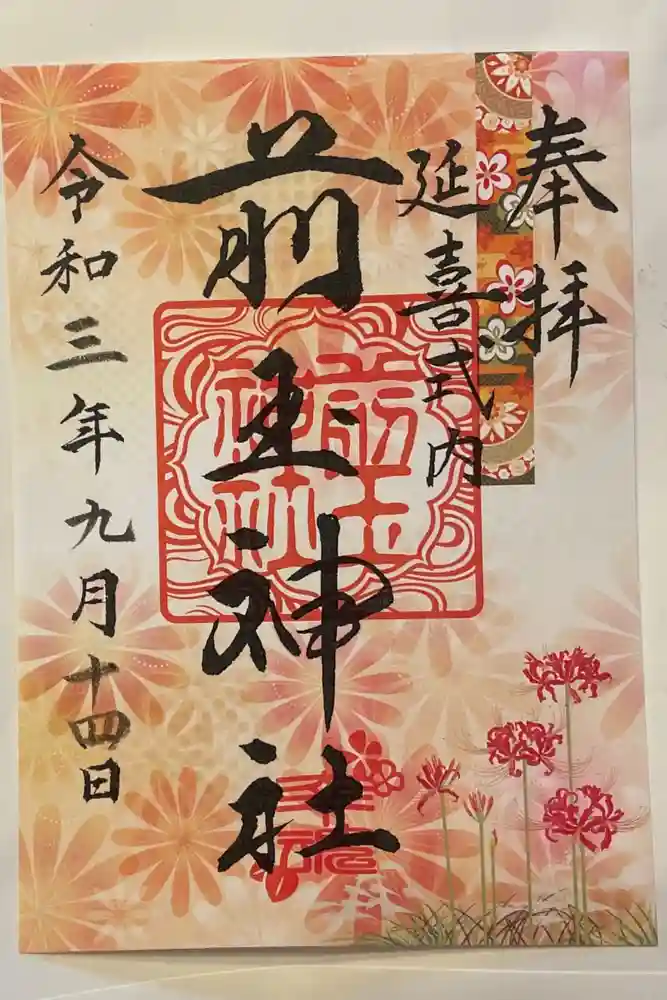 奉拝
延喜式内
前玉神社
前玉
神社
令和三年九月十四日